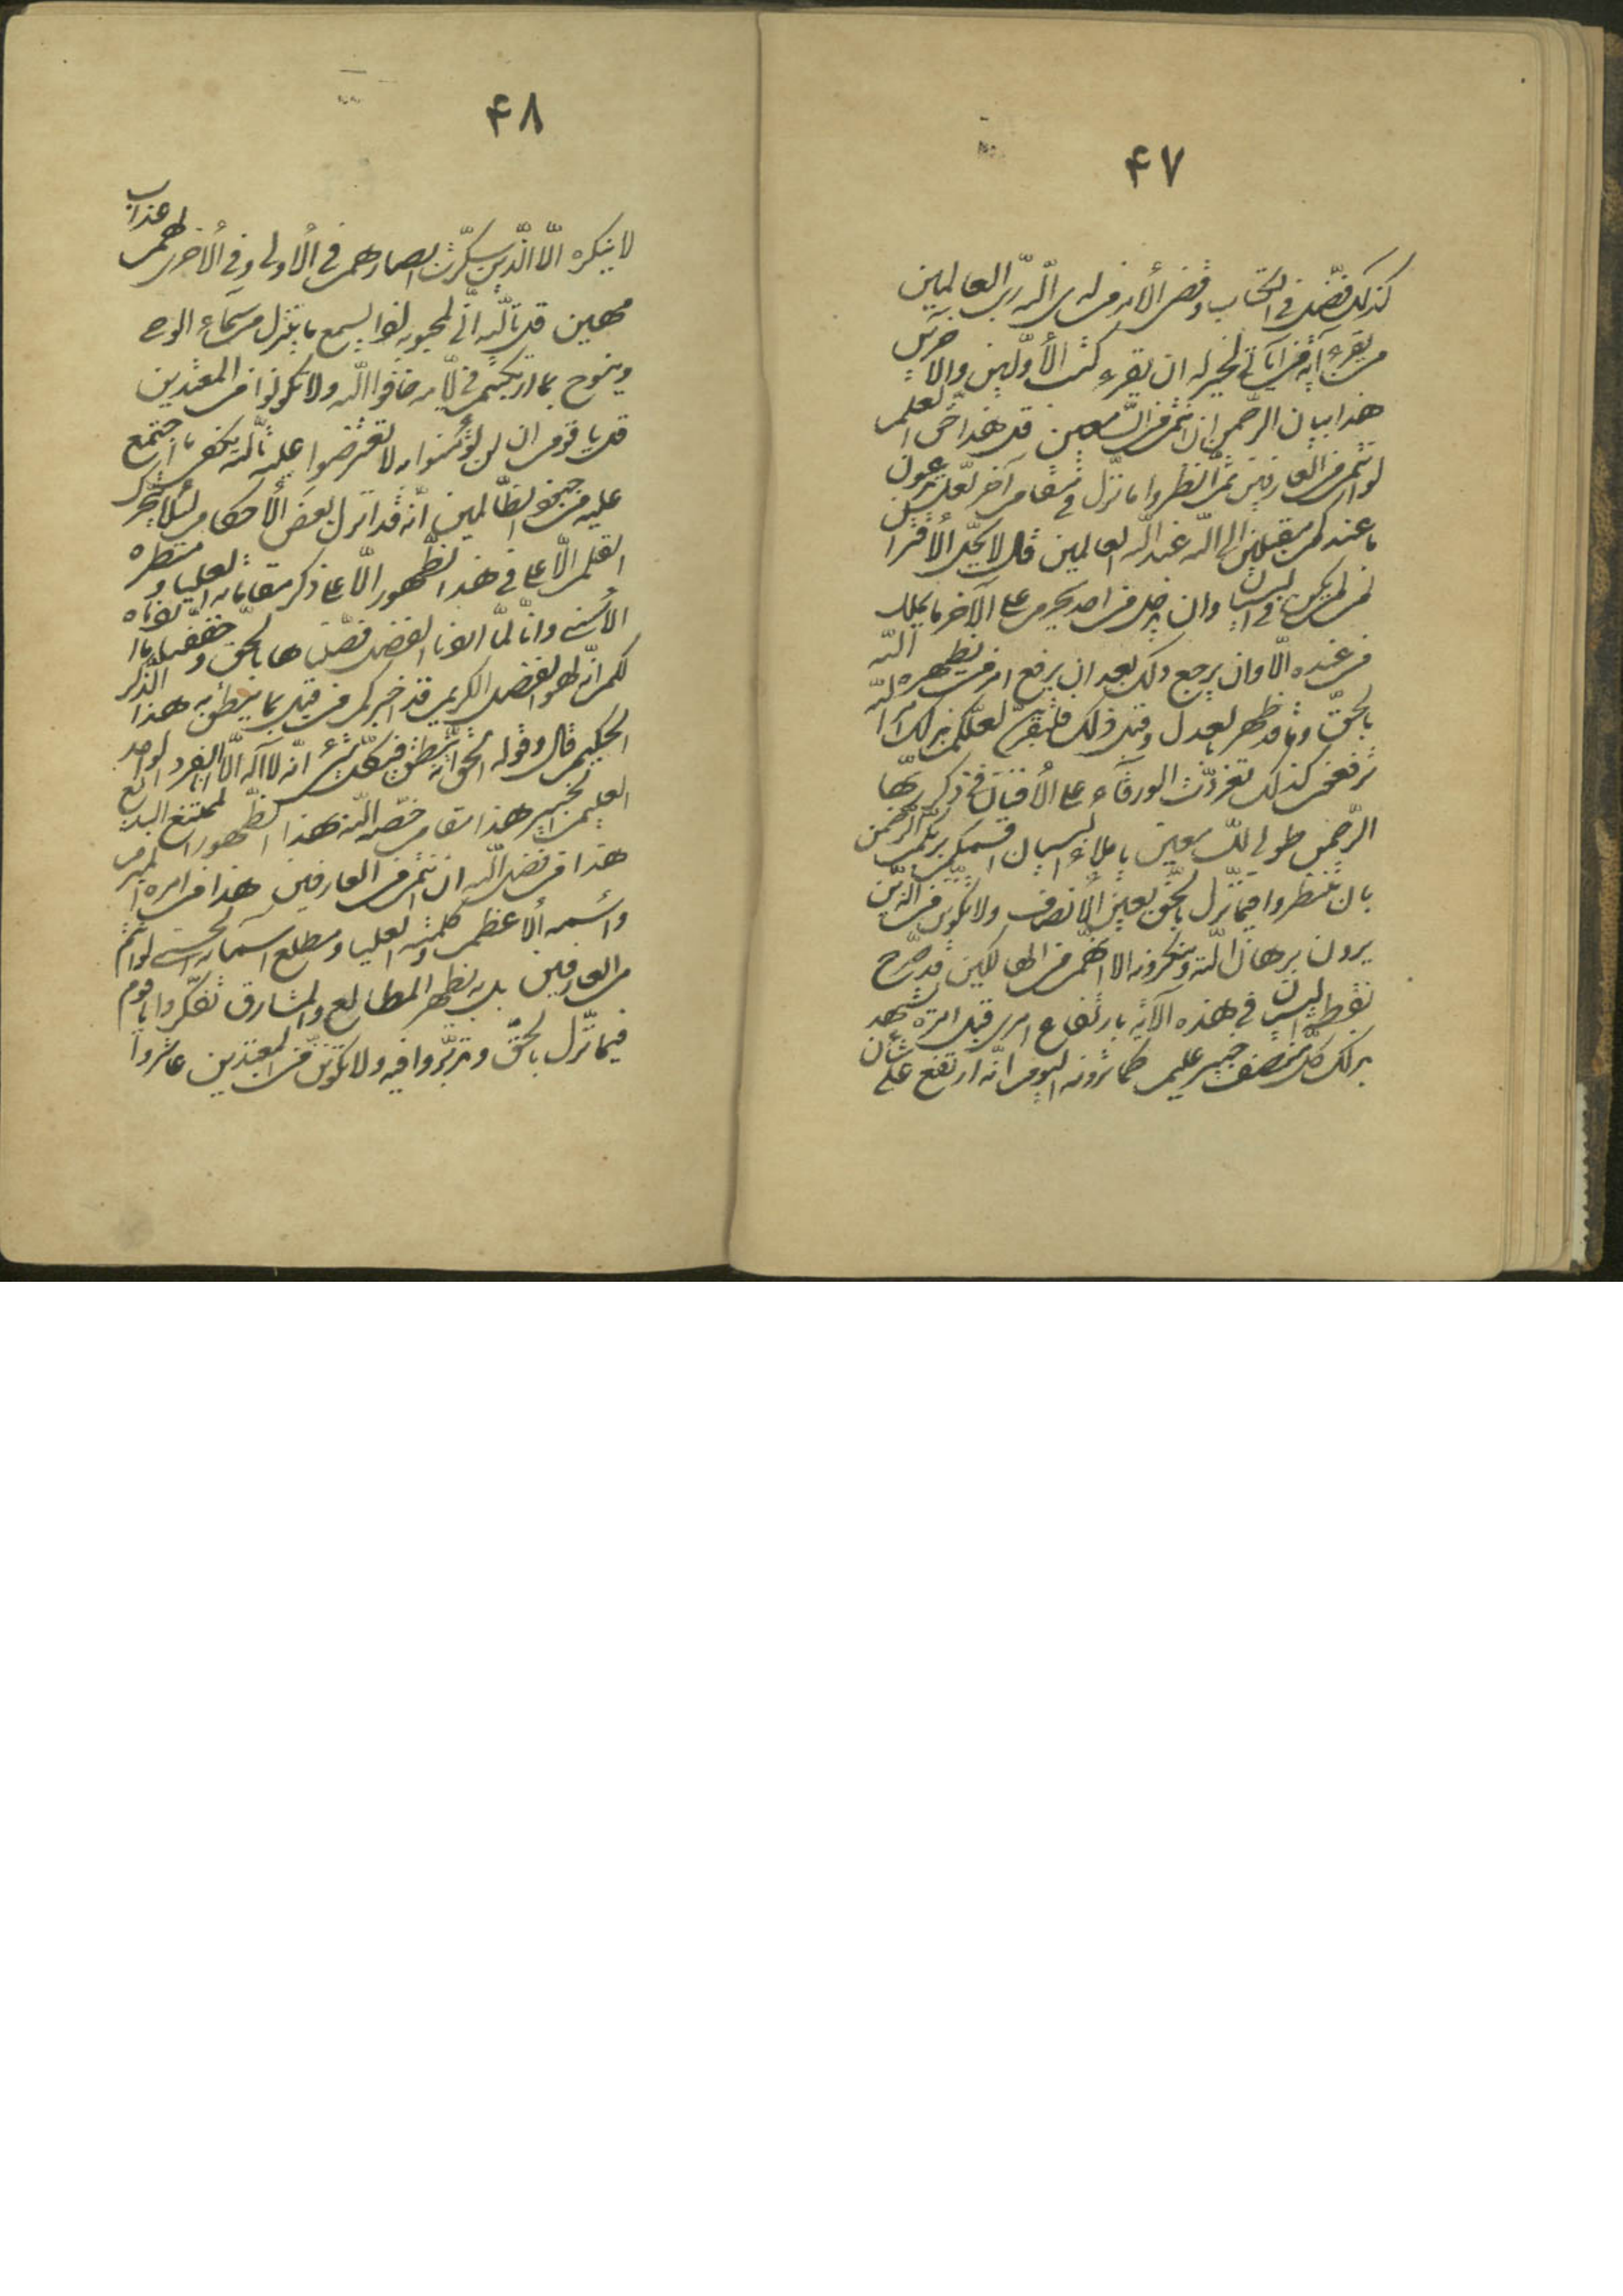 ۴۷
كذلك فصّل في الكتاب وقضي الأمر من لدى الله ربّ العالمين
من يقرء آية من آياتي لخير له ان يقرء كتب الأوّلين والآخرين
هذا بيان الرّحمن ان انتم من السّامعين قل هذا حقّ العلم
لو انتم من العارفين ثمّ انظروا ما نزّل في مقام آخر لعلّ تدعون
ما عندكم مقبلين الى الله العالمين قال لا يحلّ الأقتران
ان لم يكن في البيان وان يدخل من احد يحرم على الآخر ما يملك
من عنده الّا وان يرجع ذلك بعد ان يرفع امر من نظهره
بالحقّ او ما قد ظهر بالعدل وقبل ذلك فلتقربنّ لعلّكم بذلك امر الله
ترفعون كذلك تغرّدت الورقآء على الأفنان في ذكر ربّها
الرّحمن طوبى للسّامعين يا ملاء البيان اقسمكم بربّكم الرّحمن
بان تنظروا فيما نزّل بالحقّ بعين الأنصاف ولا تكوننّ من الّذين
يرون برهان الله وينكرونه الا انّهم من الهالكين قد صرّح
نقطة البيان في هذه الآية بارتفاع امري قبل امره يشهد
بذلك كلّ منصف خبير عليم كما ترونه اليوم انّه ارتفع على شأن
۴۸
لا ينكره الّا الّذين سكّرت ابصارهم في الأولى وفي الأخرى لهم عذاب
مهين قل تالله انّي لمحبوبه والآن يسمع ما ينزل من سمآء الوحي
وينوح بما ارتكبتم في ايّامه خافوا الله ولا تكونوا من المعتدين
قل يا قوم ان لن تؤمنوا به لا تعترضوا عليه تالله يكفي ما اجتمع
عليه من جنود الظّالمين انّه قد انزل بعض الأحكام لئلّا يتحرّك
القلم الأعلى في هذا الظّهور الّا على ذكر مقاماته العليا ومنظره
الأسنى وانّا لمّا اردنا الفضل فصّلناها بالحقّ وخفّفنا ما اردناه
لكم انّه لهو الفضّال الكريم قد اخبركم من قبل بما ينطق به هذا الذّكر
الحكيم قال وقوله الحقّ انّه ينطق في كلّ شئ انّه لا اله الّا انا الفرد الواحد
العليم الخبير هذا مقام خصّه الله لهذا الظّهور الممتنع البديع
هذا من فضل الله ان انتم من العارفين هذا من امره المبرم
واسمه الأعظم وكلمته العليا ومطلع اسمائه الحسنى لو انتم
من العارفين بل به تظهر المطالع والمشارق تفكّروا يا قوم
فيما نزّل بالحقّ وتدبّروا فيه ولا تكوننّ من المعتدين عاشروا